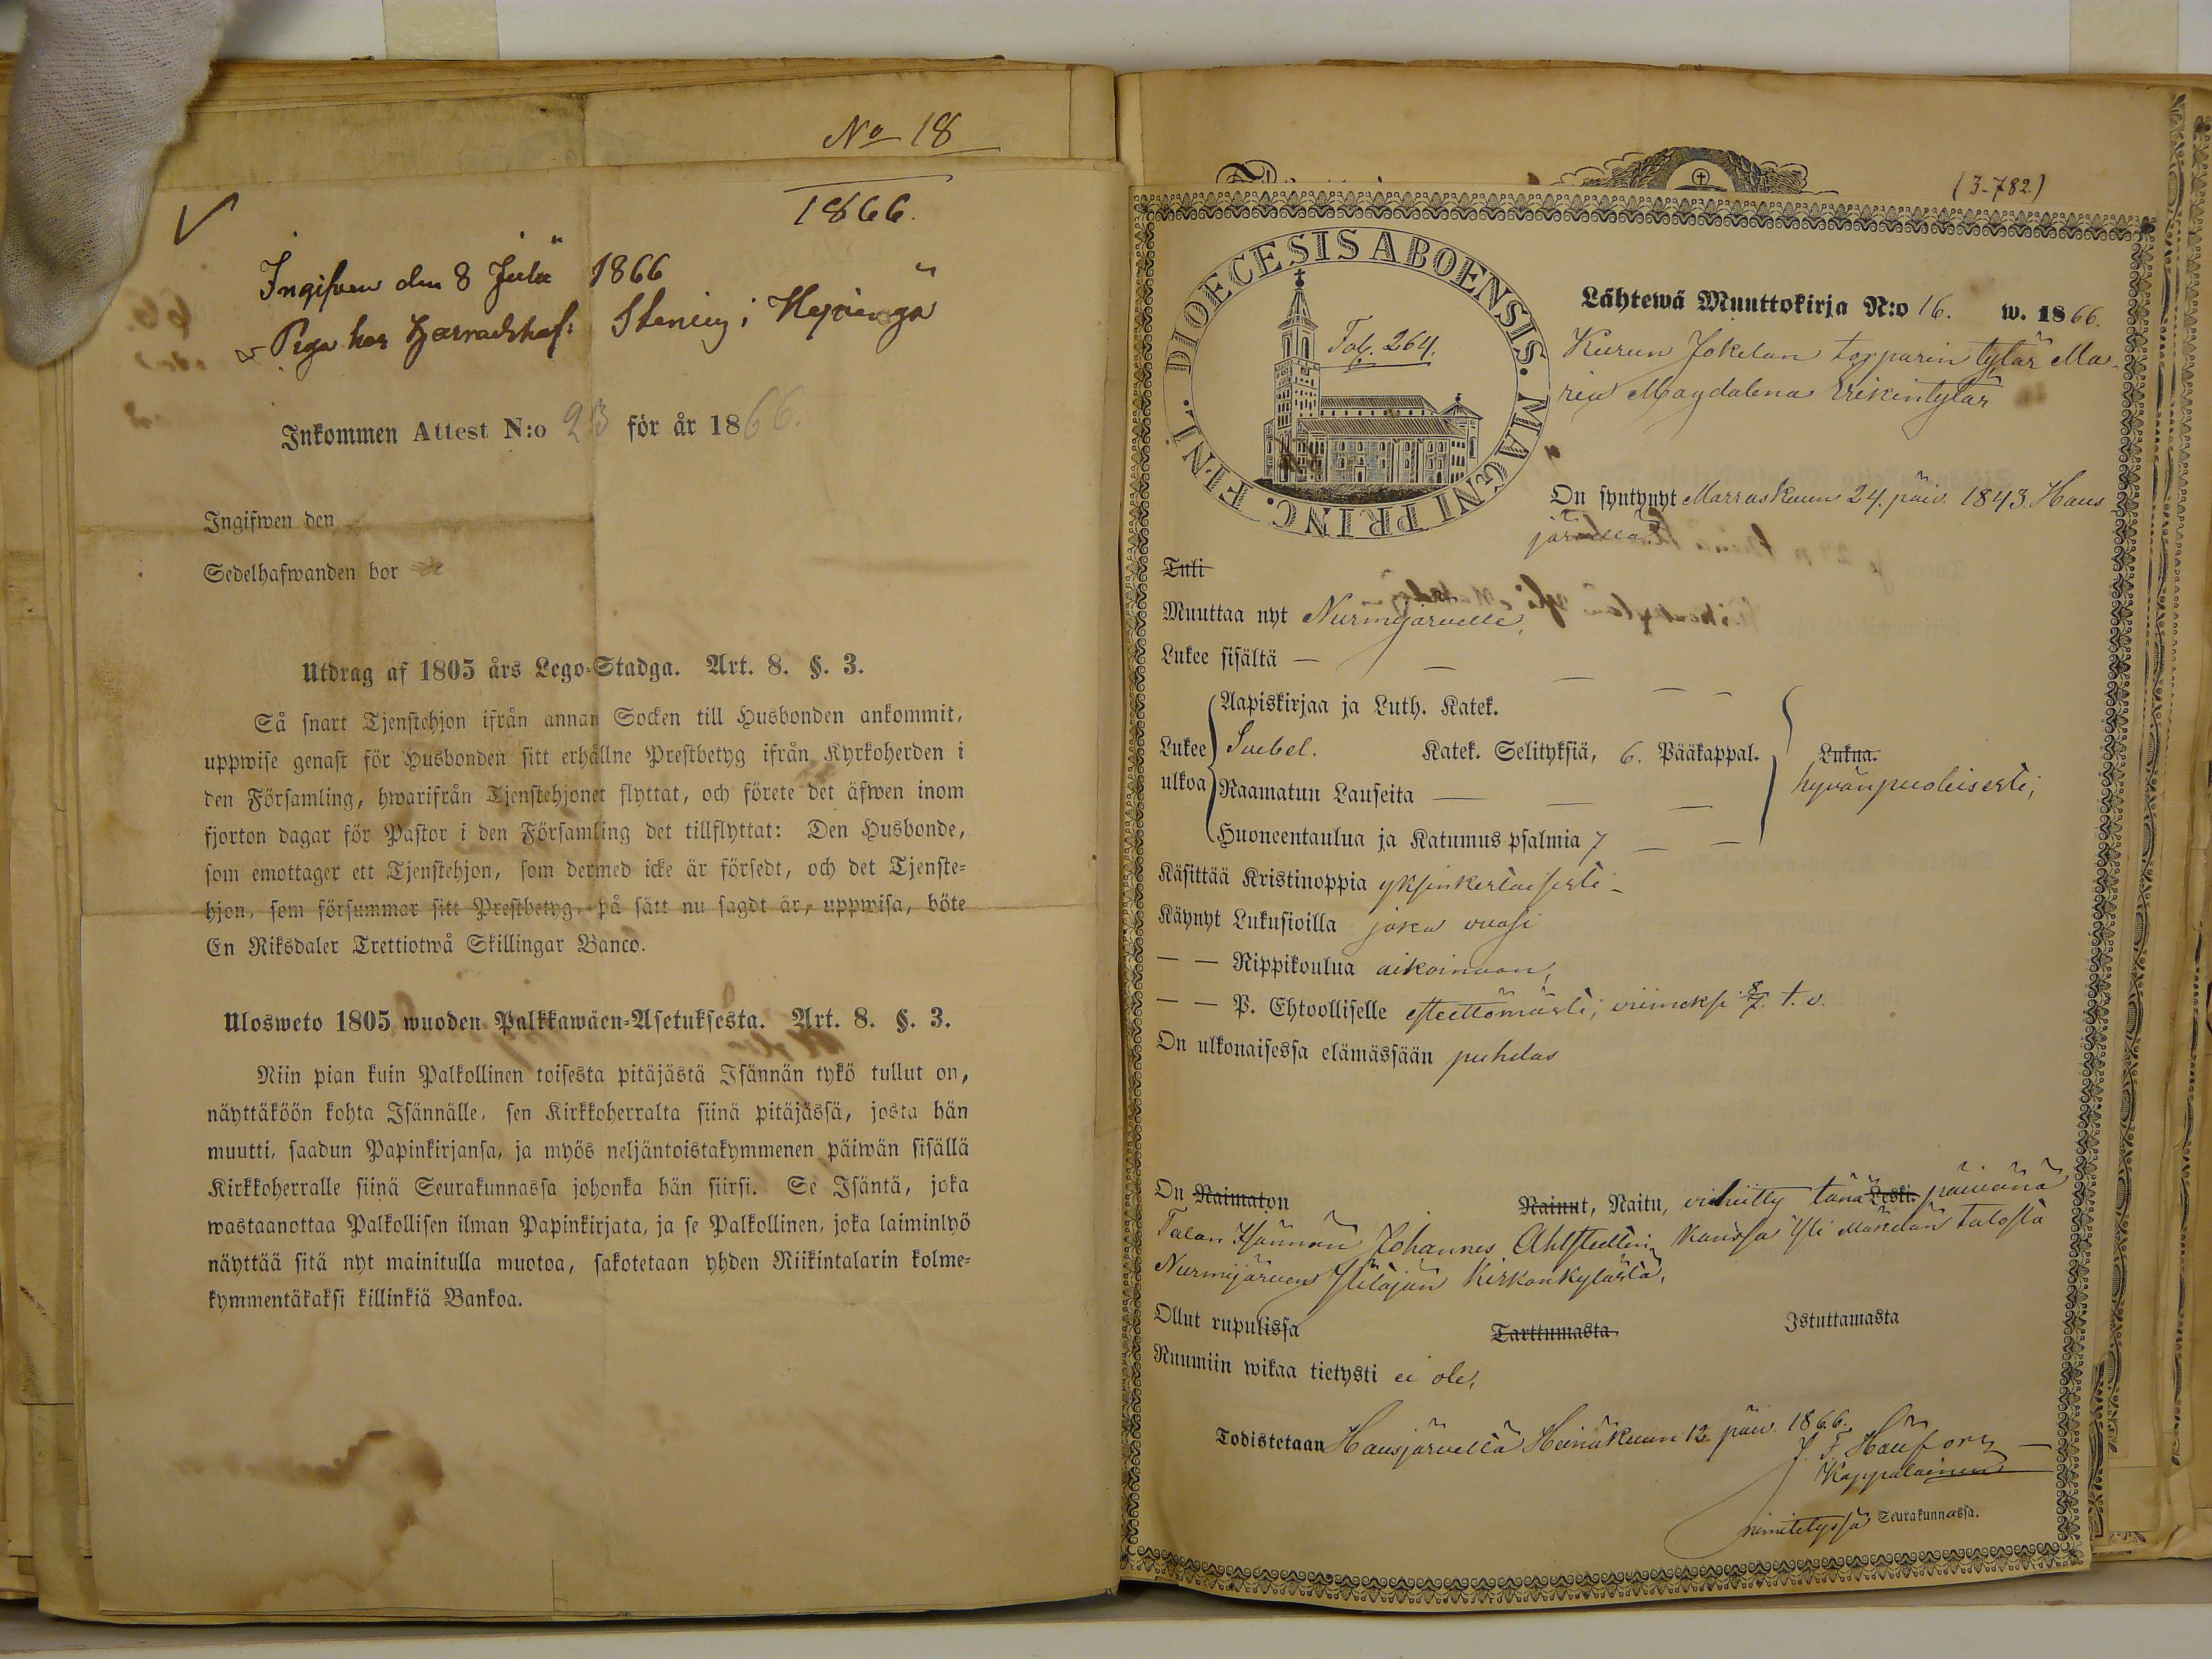 No 18
1866.
Ingifven den 8 Julii 1866
Piga hos Häradshöf: Stening i Hyvinge
Inkommen Attest N:o 23 för år 1866.
Ingifwen den
Sedelhafwanden bor
Utdrag af 1805 års Lego-Stadga. Art. 8. §. 3.
Så snart Tjenstehjon ifrån annan Socken till Husbonden ankommit,
uppwise genast för Husbonden sitt erhållne Prestbetyg ifrån Kyrkoherden i
den Församling, hwarifrån Tjenstehjonet flyttat, och förete det äfwen inom
fjorton dagar för Pastor i den Församling det tillflyttat: Den Husbonde,
som emottager ett Tjenstehjon, som dermed icke är försedt, och det Tjenste-
hjon, som försummar sitt Prestbetyg, på sätt nu sagdt är, uppwisa, böte
En Riksdaler Trettiotwå Skillingar Banco.
Ulosweto 1805 wuoden Palkkawäen-Asetuksesta. Art. 8. §. 3.
Niin pian kuin Palkollinen toisesta pitäjästä Isännän tykö tullut on,
näyttäköön kohta Isännälle, sen Kirkkoherralta siinä pitäjässä, josta hän
muutti, saadun Papinkirjansa, ja myös neljäntoistakymmenen päiwän sisällä
Kirkkoherralle siinä Seurakunnassa johonka hän siirsi. Se Isäntä, joka
wastaanottaa Palkollisen ilman Papinkirjata, ja se Palkollinen, joka laiminlyö
näyttää sitä nyt mainitulla muotoa, sakotetaan yhden Riikintalarin kolme-
kymmentäkaksi killinkiä Bankoa.
(3-782)
DIOECESIS ABOENSIS. MAGNI PRINC. FINL.
Pag. 264.
Lähtewä Muuttokirja N:o 16. w. 1866.
Kurun Jokelan torparin tytär Ma-
ria Magdalena Erikintytär
On syntynyt Marraskuun 24. päiv. 1843 Haus-
järvellä
Tuli
Muuttaa nyt Nurmijärvelle,
Lukee sisältä — — — — —
Aapiskirjaa ja Luth. Katek.
Lukee ulkoa Svebel. Katek. Selityksiä, 6. Pääkappal. Lukua.
hyvänpuoleisesti;
Raamatun Lauseita — — —
Huoneentaulua ja Katumus psalmia 7 — —
Käsittää Kristinoppia yksinkertaisesti –
Käynyt Lukusioilla joka vuosi
— — Rippikoulua aikoinaan,
— — P. Ehtoolliselle esteettömästi; viimeksi 8/7 t. v.
On ulkonaisessa elämässään puhdas
On Naimaton Nainut, Naitu, vihitty tänä Leski. päivänä
Talon Isännän Johannes Ahlstedtin kanssa Yli Mäkelän talosta
Nurmijärven Pitäjän Kirkonkylästä,
Ollut rupulissa Tarttumasta Istuttamasta
Ruumiin wikaa tietysti ei ole,
Todistetaan Hausjärvellä Heinäkuun 12. päiv. 1866.
Kappalainen
nimitetyssä Seurakunnassa.